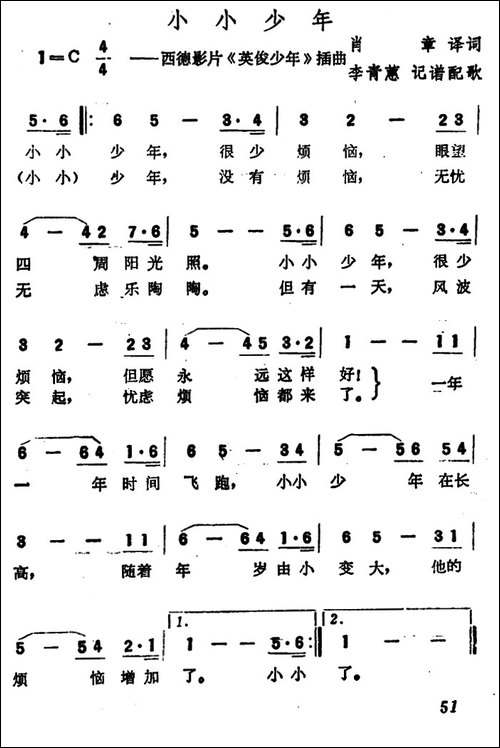 小小少年
1=C 4/4 ——西德影片《英俊少年》插曲 肖章译词
李青蕙 记谱配歌
5·6 ‖: 6 5 — 3·4 | 3 2 — 23 |
小小 少年，很少 烦恼，眼望
（小小）少年，没有 烦恼，无忧
4 — 42 7·6 | 5 — — 5·6 | 6 5 — 3·4 |
四 周阳光 照。 小小 少年，很少
无 虑乐陶 陶。 但有 一天，风波
3 2 — 23 | 4 — 45 3·2 | 1 — — 11 |
烦恼，但愿 永 远这样 好！} 一年
突起，忧虑 烦 恼都来 了。
6 — 64 1·6 | 6 5 — 34 | 5 — 56 54 |
一 年时间 飞跑，小小 少 年在长
3 — — 11 | 6 — 64 1·6 | 6 5 — 31 |
高， 随着 年 岁由小 变大，他的
5 — 54 2·1 | 1. 1 — — 5·6 :‖ 2. 1 — — ‖
烦 恼增加 了。 小小 了。
51